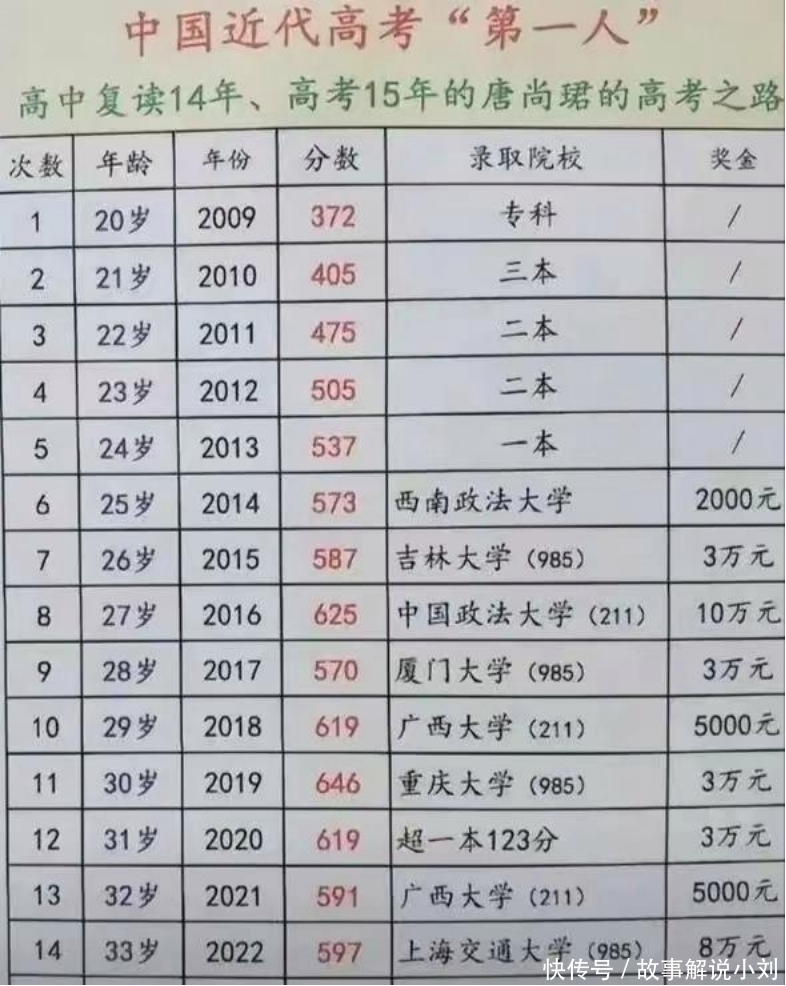 中国近代高考“第一人”
高中复读14年、高考15年的唐尚珺的高考之路
次数 年龄 年份 分数 录取院校 奖金
1 20岁 2009 372 专科 /
2 21岁 2010 405 三本 /
3 22岁 2011 475 二本 /
4 23岁 2012 505 二本 /
5 24岁 2013 537 一本 /
6 25岁 2014 573 西南政法大学 2000元
7 26岁 2015 587 吉林大学（985） 3万元
8 27岁 2016 625 中国政法大学（211） 10万元
9 28岁 2017 570 厦门大学（985） 3万元
10 29岁 2018 619 广西大学（211） 5000元
11 30岁 2019 646 重庆大学（985） 3万元
12 31岁 2020 619 超一本123分 3万元
13 32岁 2021 591 广西大学（211） 5000元
14 33岁 2022 597 上海交通大学（985） 8万元
快传号 / 故事解说小刘